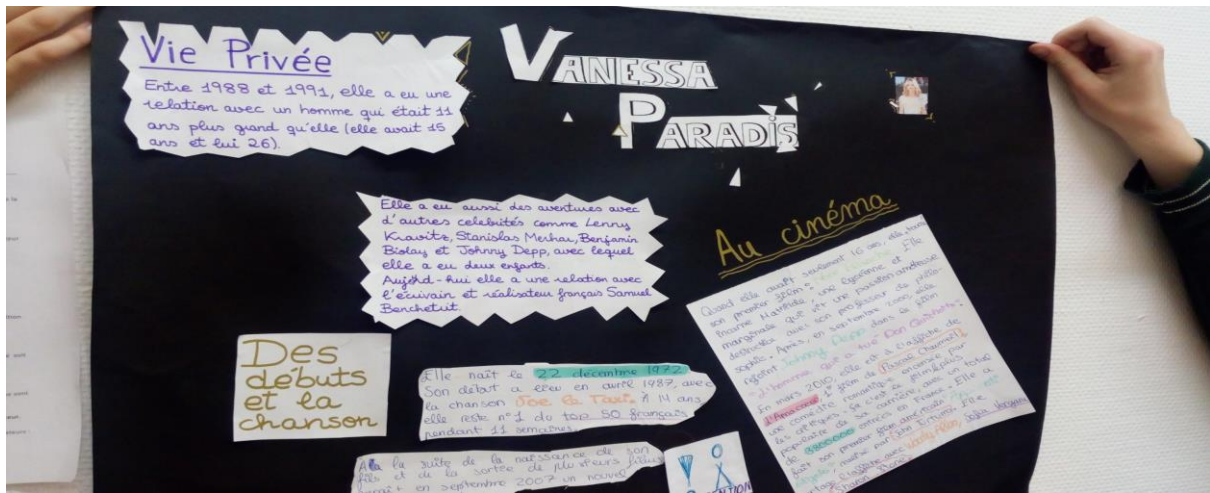 Vie Privée
Entre 1988 et 1991, elle a eu une
relation avec un homme qui était 11
ans plus grand qu'elle (elle avait 15
ans et lui 26).
VANESSA
PARADIS
Elle a eu aussi des aventures avec
d'autres celebrités comme Lenny
Kravitz, Stanislas Merhar, Benjamin
Biolay et Johnny Depp, avec lequel
elle a eu deux enfants.
Aujord-hui elle a une relation avec
l'écuivain et réalisateur français Samuel
Benchetrit.
Au cinéma
Quand elle avait seulement 16 ans, elle
son premier film Elle
incarne Mathilde, une lycéenne et
marginale qui vit une passion amoureuse
destructrice avec son professeur de philo-
sophie. Après, en septembre 2000, elle
rejoint Johnny Depp dans le film
"L'homme qui a tué Don Quichotte".
En mars 2010, elle est à l'affiche de
l'Arnacoeur, 1º film de Pascal Chaumeil,
une comédie romantique encensée par
les critiques. Ça c'est le film plus
populaire de sa carrière, avec un total
de 3800000 entrées en France. Elle a
fait son premier film américain
réalisé par John Turturro. Elle
partage l'affiche avec Woody Allen, Sofia Vergara
Sharon Stone.
Des
débuts
et la
chanson
Elle naît le 22 décembre 1972
Son début a lieu en avril 1987, avec
la chanson Joe le Taxi. À 14 ans,
elle reste nº1 du top 50 français
pendant 11 semaines.
À la suite de la naissance de son
fils et de la sortie de plusieurs films
en septembre 2007 un nouvel